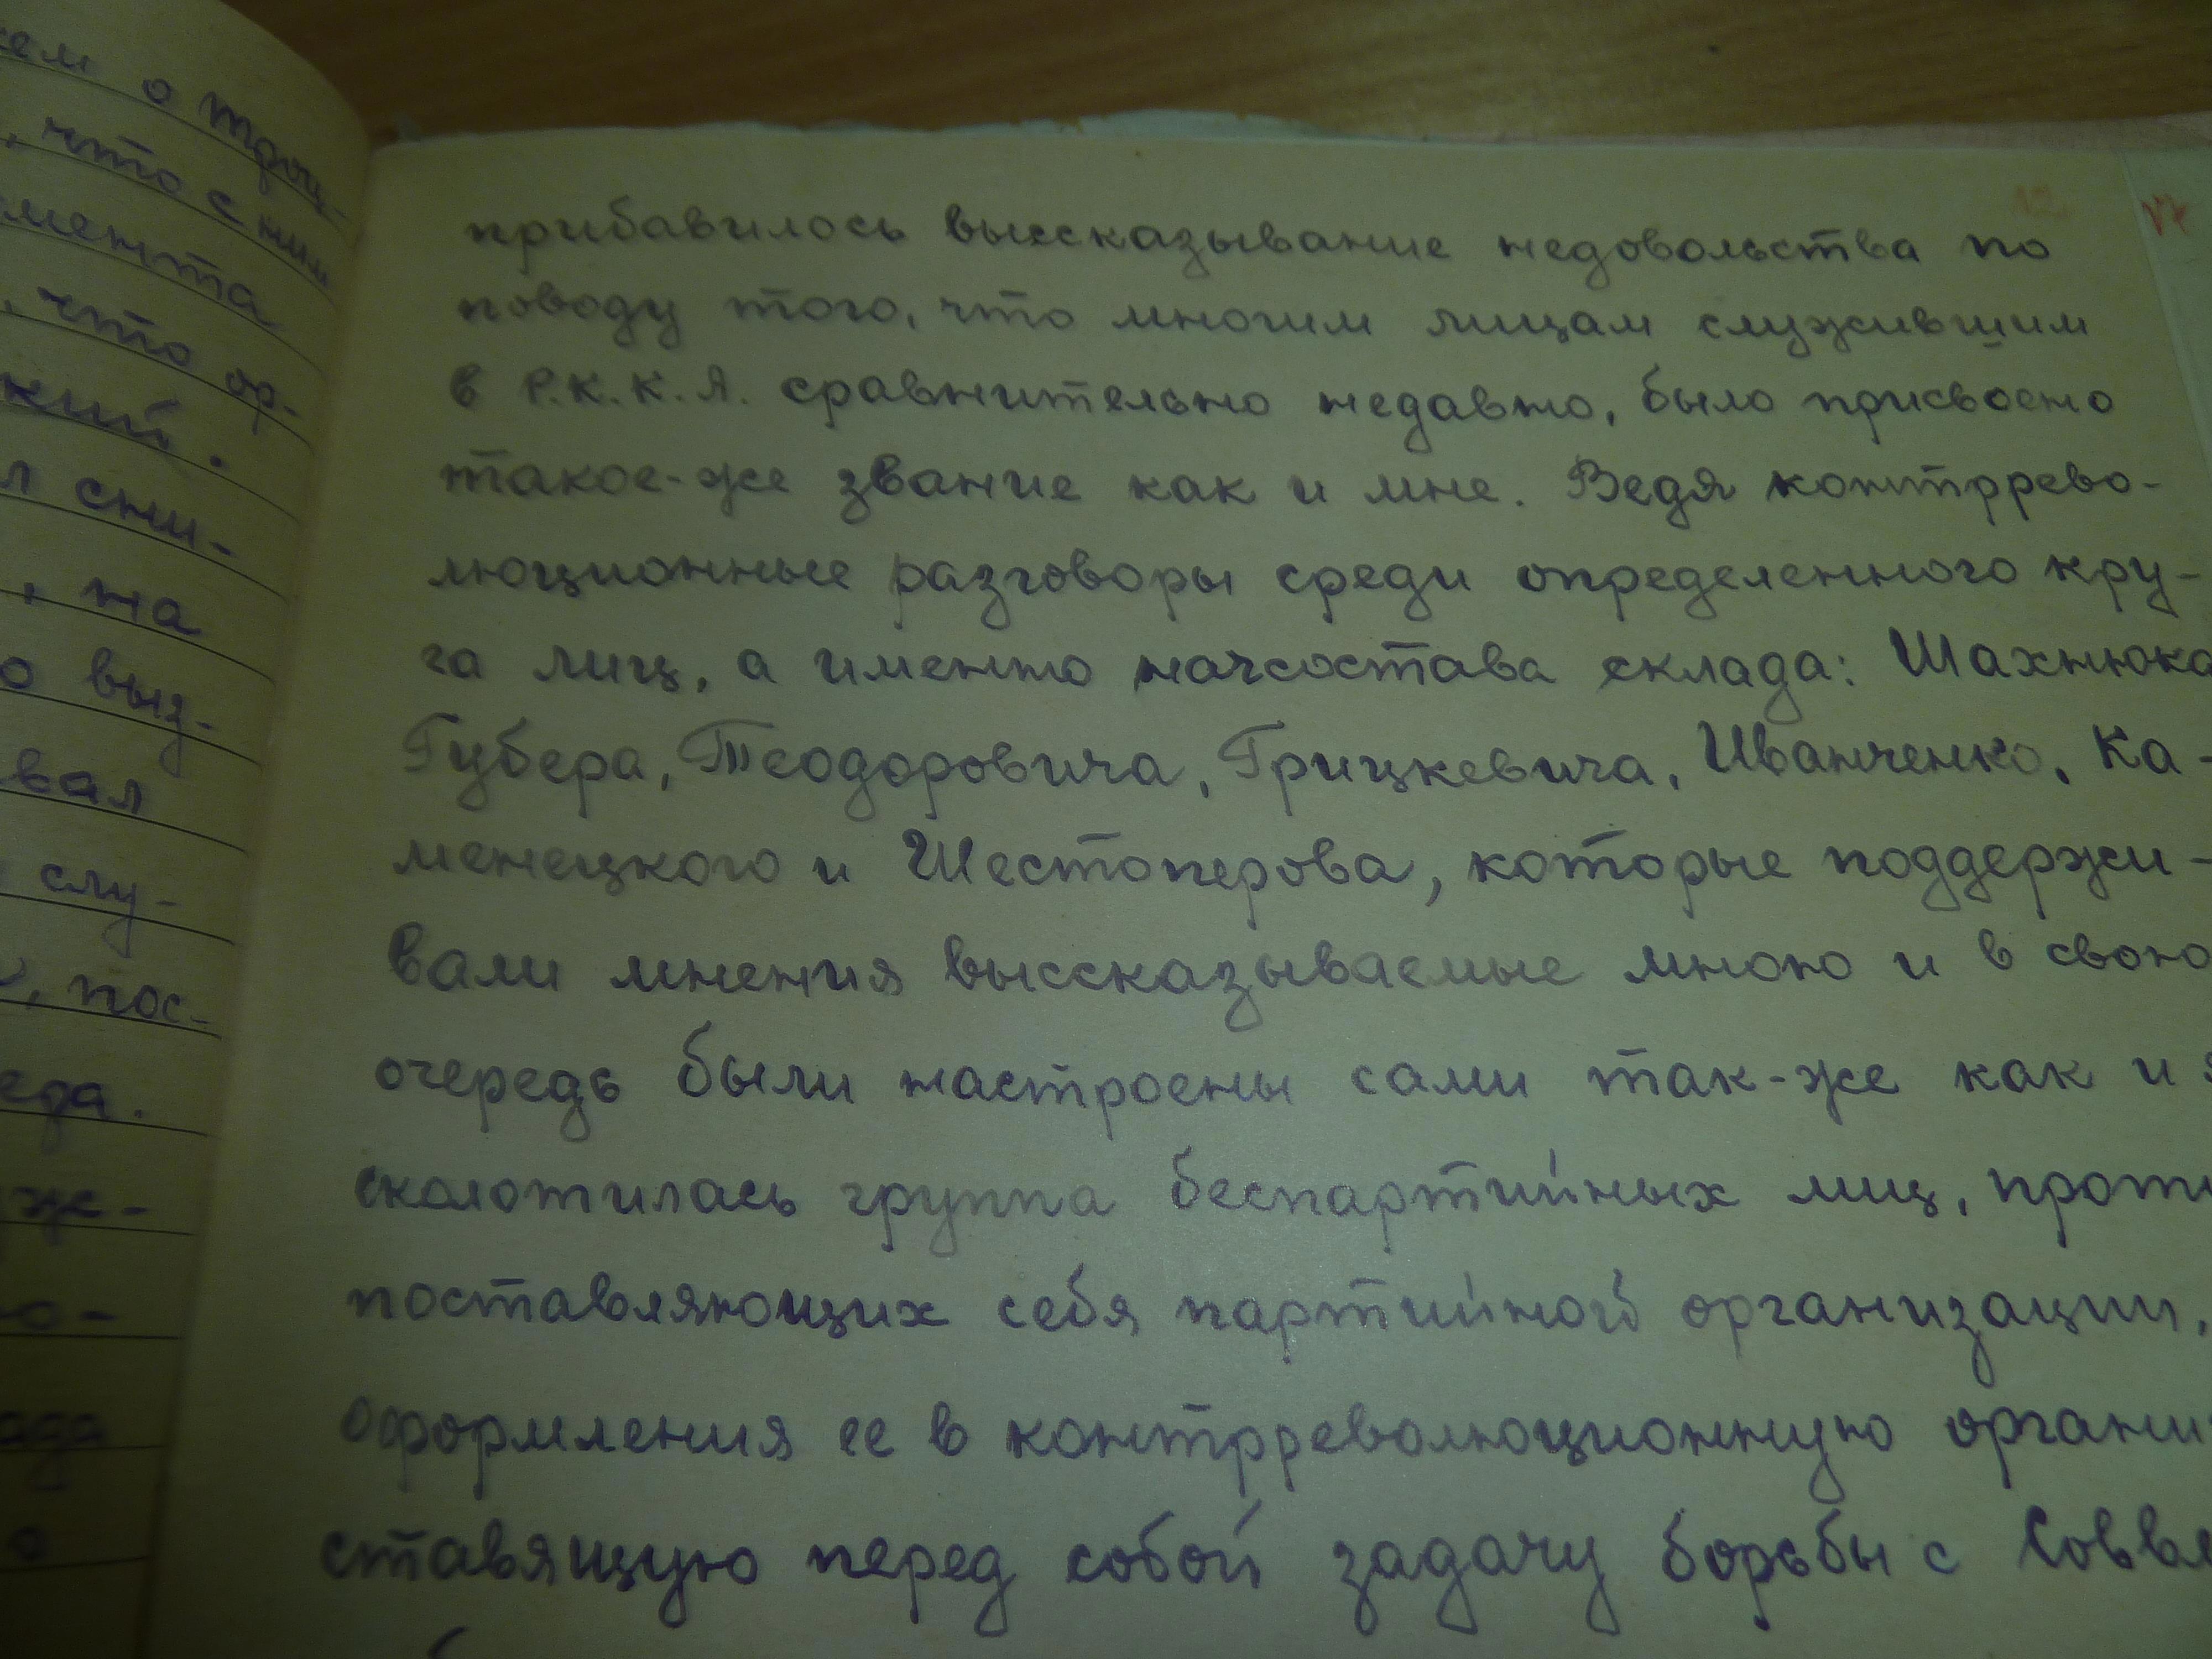 ем о
, что с ним
мента
, что ор-
кий.
л сни-
, на
о выз-
вал
слу-
, пос-
еда.
ж-
о-
ада
о
прибавилось выссказывание недовольства по
поводу того, что многим лицам служившим
в Р.К.К.А. сравнительно недавно, было присвоено
такое-же звание как и мне. Ведя контррево-
люционные разговоры среди определенного кру-
га лиц, а именно начсостава склада: Шахнюка
Губера, Теодоровича, Грицкевича, Иванченко, Ка-
менецкого и Шестоперова, которые поддержи-
вали мнения выссказываемые мною и в свою
очередь были настроены сами так-же как и я
сколотилась группа беспартийных лиц, проти
поставляющих себя партийной организации,
оформления ее в контрреволюционную органи
ставящую перед собой задачу борьбы с Соввл